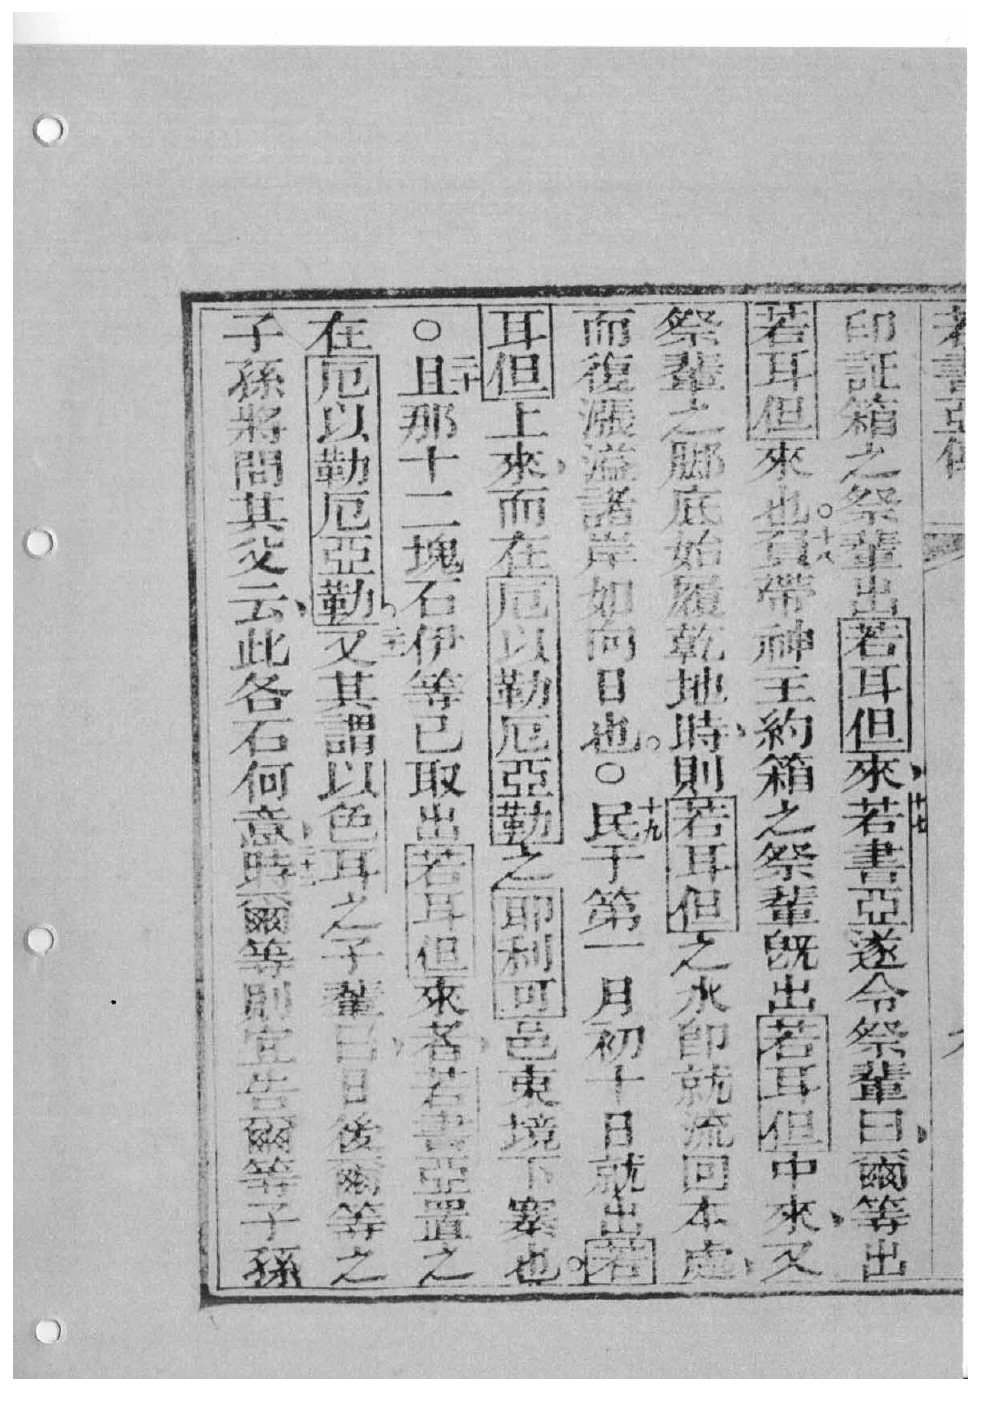 若書亞傳
印証箱之祭輩出若耳但來十七若書亞遂令祭輩曰爾等出
若耳但來也。十八負帶神王約箱之祭輩旣出若耳但中來又
祭輩之脚底始履乾地時則若耳但之水即就流回本處
而復漲溢諸岸如向日也。○十九民于第一月初十日就出若
耳但上來而在厄以勒厄亞勒之耶利可邑東境下寨也。
○二十且那十二塊石伊等已取出若耳但來者若書亞置之
在厄以勒厄亞勒。二十一又其謂以色耳之子輩曰日後爾等之
子孫將問其父云此各石何意二十二時爾等則宜告爾等子孫